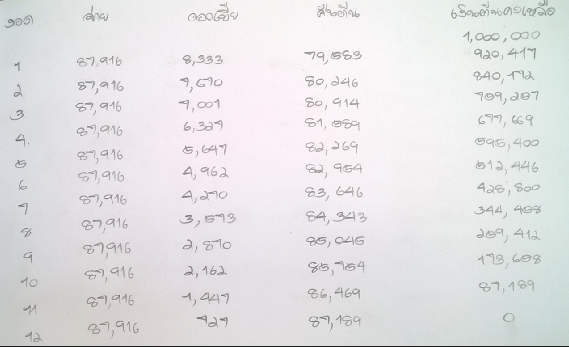 งวด จ่าย ดอกเบี้ย เงินต้นคงเหลือ
1,000,000
1 87,916 8,333 79,583 920,417
2 87,916 7,670 80,246 840,172
3 87,916 7,001 80,914 759,257
4. 87,916 6,327 81,589 677,669
5 87,916 5,647 82,269 595,400
6 87,916 4,962 82,954 512,446
7 87,916 4,270 83,646 428,800
8 87,916 3,573 84,343 344,458
9 87,916 2,870 85,045 259,412
10 87,916 2,162 85,754 173,658
11 87,916 1,447 86,469 87,189
12 87,916 727 87,189 0